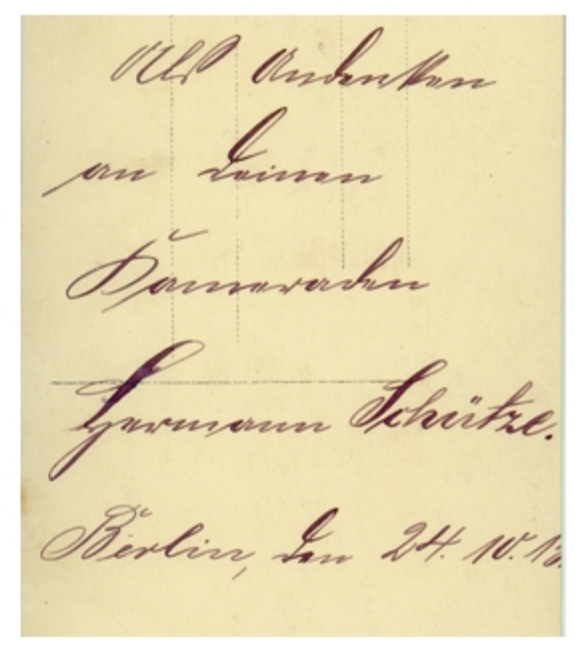 Als Andenken
an Deinen
Kameraden
Hermann Schütze.
Berlin, den 24. 10.